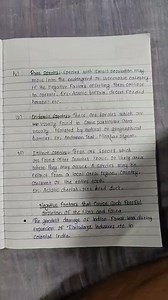 iv) Rare Species: Species with small population may
move into the endangered or vulnerable category
if the negative factors affecting them continue
to operate. Ex:- Asiatic buffalo, desert fox and
hornbill etc.
v) Endemic Species: These are species which
are only found in some particular areas
usually isolated by natural or geographical
barriers. Ex: Andaman Teal, Nicobar Pigeon.
vi) Extinct Species: These are species which
are found after searches of known or likely areas
where they may occur. A species may be
extinct from a local area, region, country,
continent or the entire earth.
Ex: Asiatic cheetah, Pink Head duck.
Negative Factors that Cause such Fearful
Depletion of the Flora and Fauna
The greatest damage of Indian Forest was during
expansion of Railways, Industries etc in
Colonial India